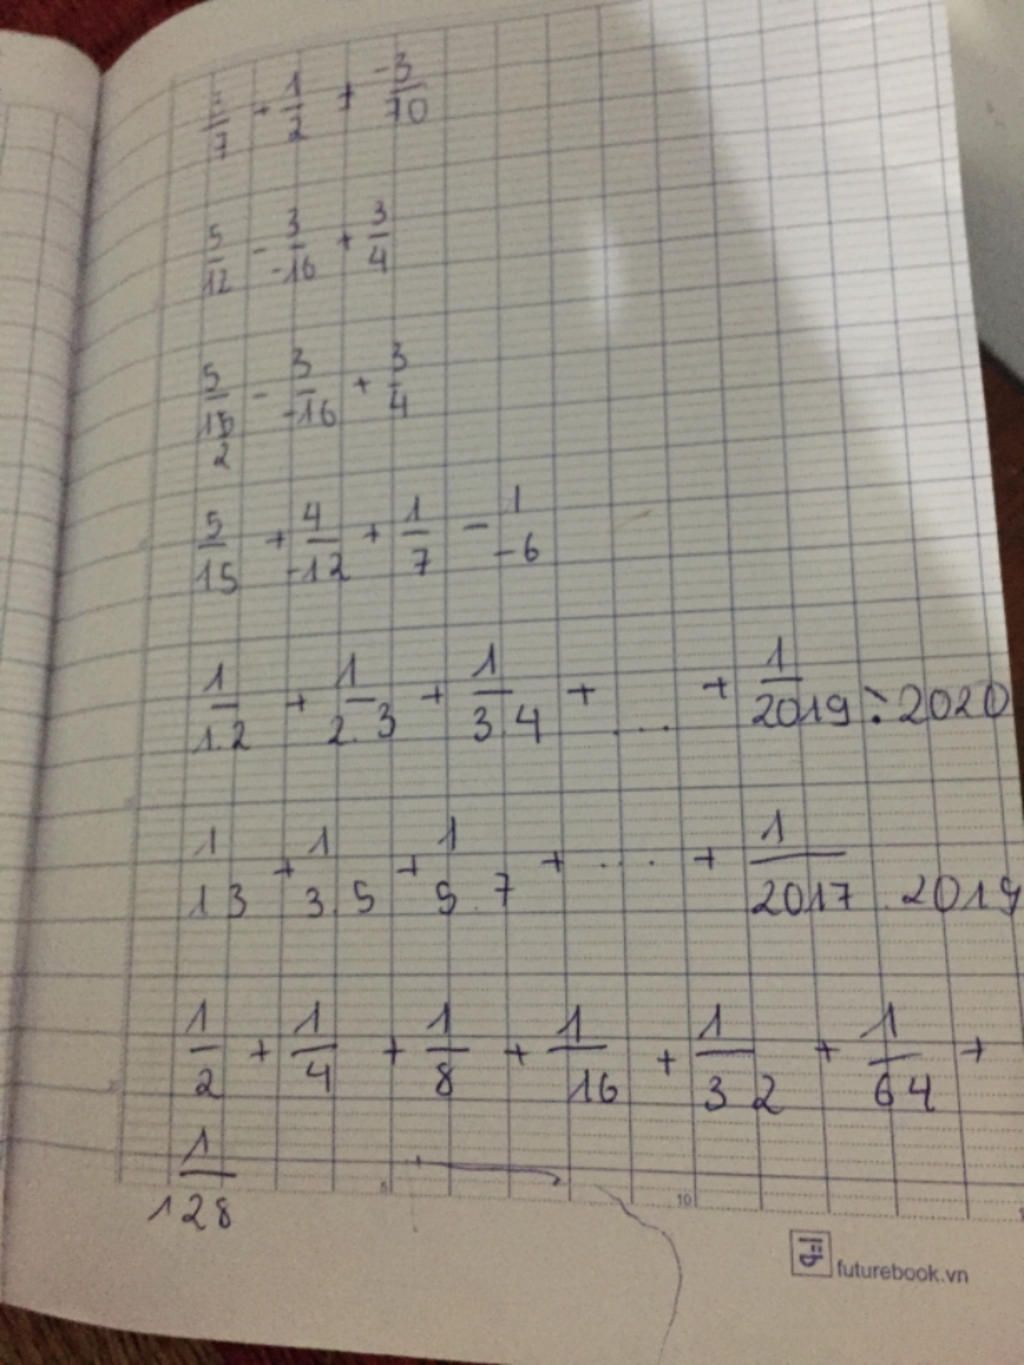 /7 + 1/2 + -3/70
5/12 - 3/-16 + 3/4
5/18 - 3/-16 + 3/4
2
5/15 + 4/-12 + 1/7 - 1/-6
1/1.2 + 1/2.3 + 1/3.4 + .... + 1/2019 : 2020
1/1 3 + 1/3.5 + 1/5.7 + .... + 1/2017.2019
1/2 + 1/4 + 1/8 + 1/16 + 1/32 + 1/64 +
1/128
10
futurebook.vn